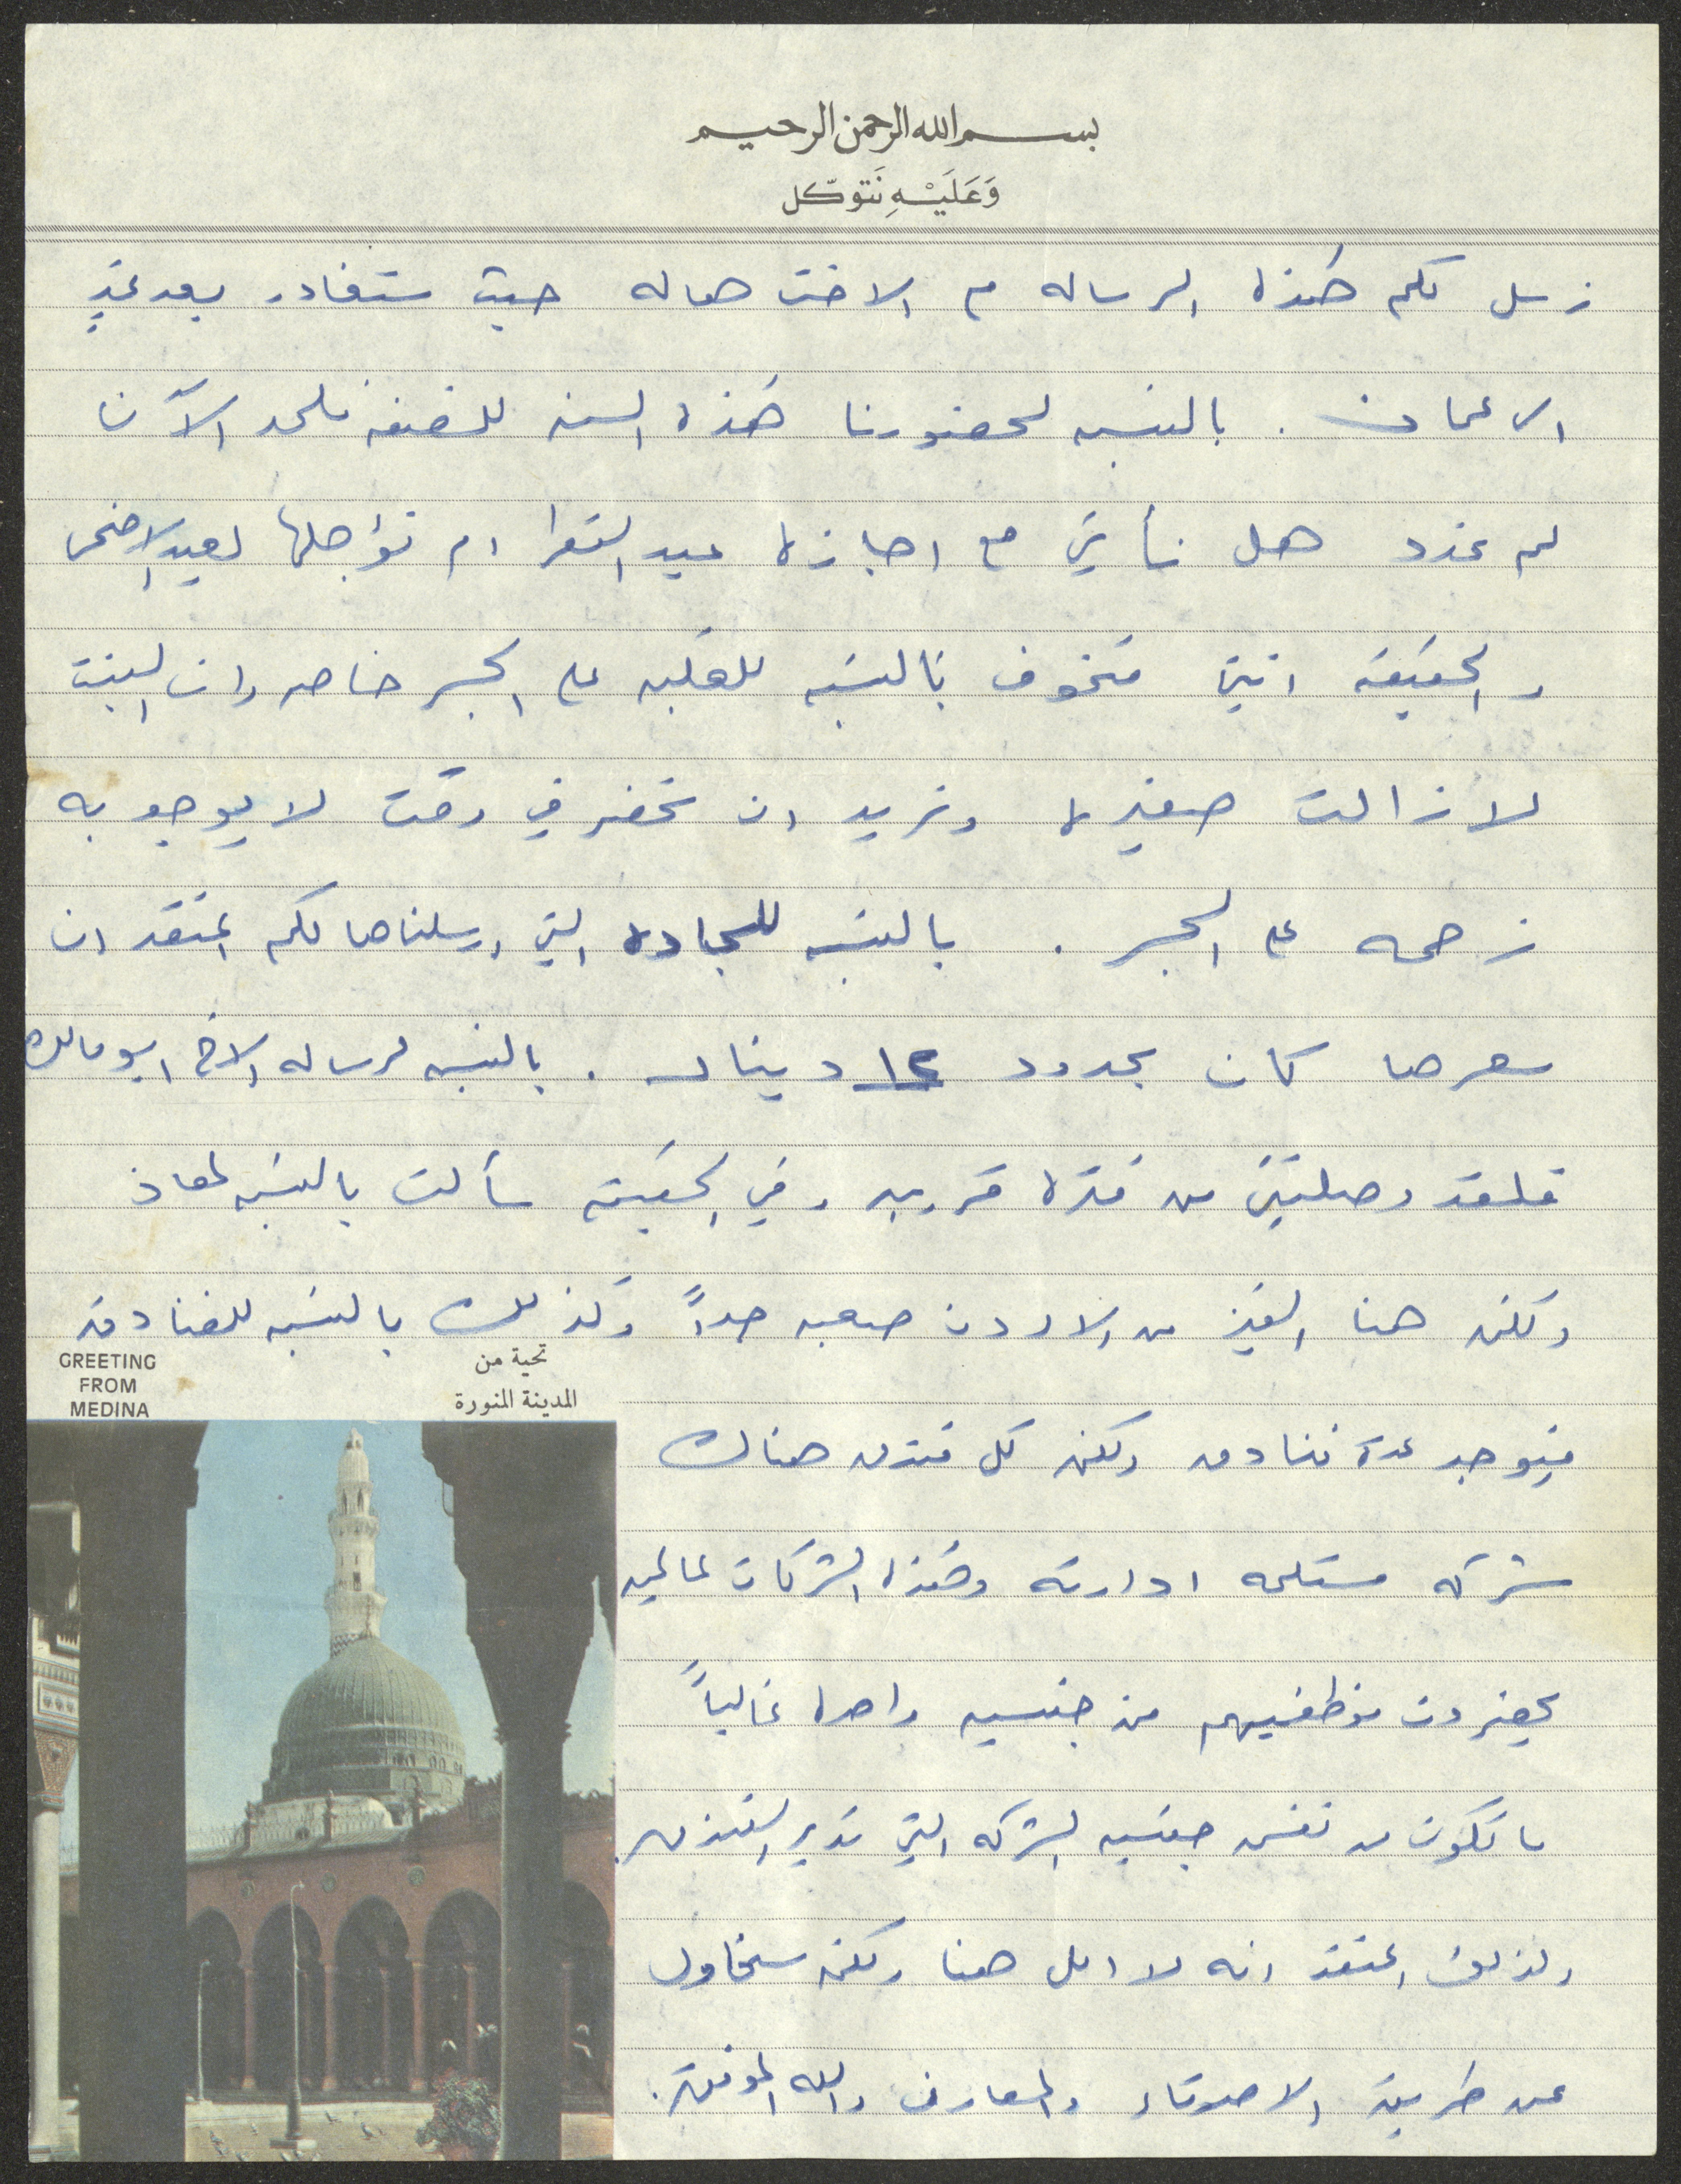 بسم الله الرحمن الرحيم
وَعَلَيْهِ نَتَوكّل
نرسل لكم هذه الرساله مع الاخت هاله حيث ستغادر بعد غدٍ
الى عمان . بالنسبه لحضورنا هذه السنه للضفه فلحد الآن
لم نحدد هل نأتي مع اجازه عيد الفطر ام نؤجلها لعيد الاضحى
والحقيقه انني متخوف بالنسبه للغلبه على الجسر خاصه وان البنت
لا زالت صغيره ونريد ان نحضر في وقت لا يوجد به
زحمه على الجسر . بالنسبه للسجاده التي ارسلناها لكم اعتقد ان
سعرها كان بحدود ١٢ دينار . بالنسبه لرساله الاخ ابو مالك
فلقد وصلتني من فتره قريبه وفي الحقيقه سألت بالنسبه لمعاذ
ولكن هنا الفيز من الاردن صعبه جداً وكذلك بالنسبه للفنادق
فيوجد عدة فنادق ولكن كل فندق هناك
شركه مستلمه ادارته وهذه الشركات عالميه
يحضرون موظفيهم من جنسيه واحده غالباً
ما تكون من نفس جنسيه الشركه التي تدير الفندق.
ولذلك اعتقد انه لا امل هنا ولكن سنحاول
عن طريق الاصدقاء والمعارف والله الموفق.
GREETING
FROM
MEDINA
تحية من
المدينة المنورة